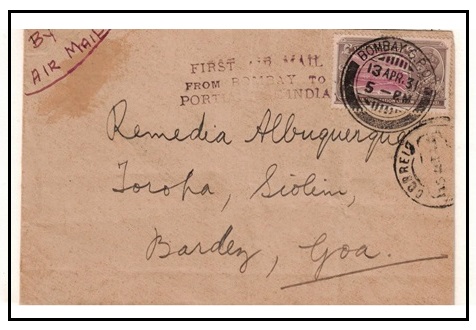 BY
AIR MAIL
FIRST AIR MAIL
FROM BOMBAY TO
PORTUGUESE INDIA
BOMBAY G.P.O.
13 APR. 31
5 - PM
CORREIO
Remedia Albuquerque
Toropa, Siolim,
Bardez, Goa.